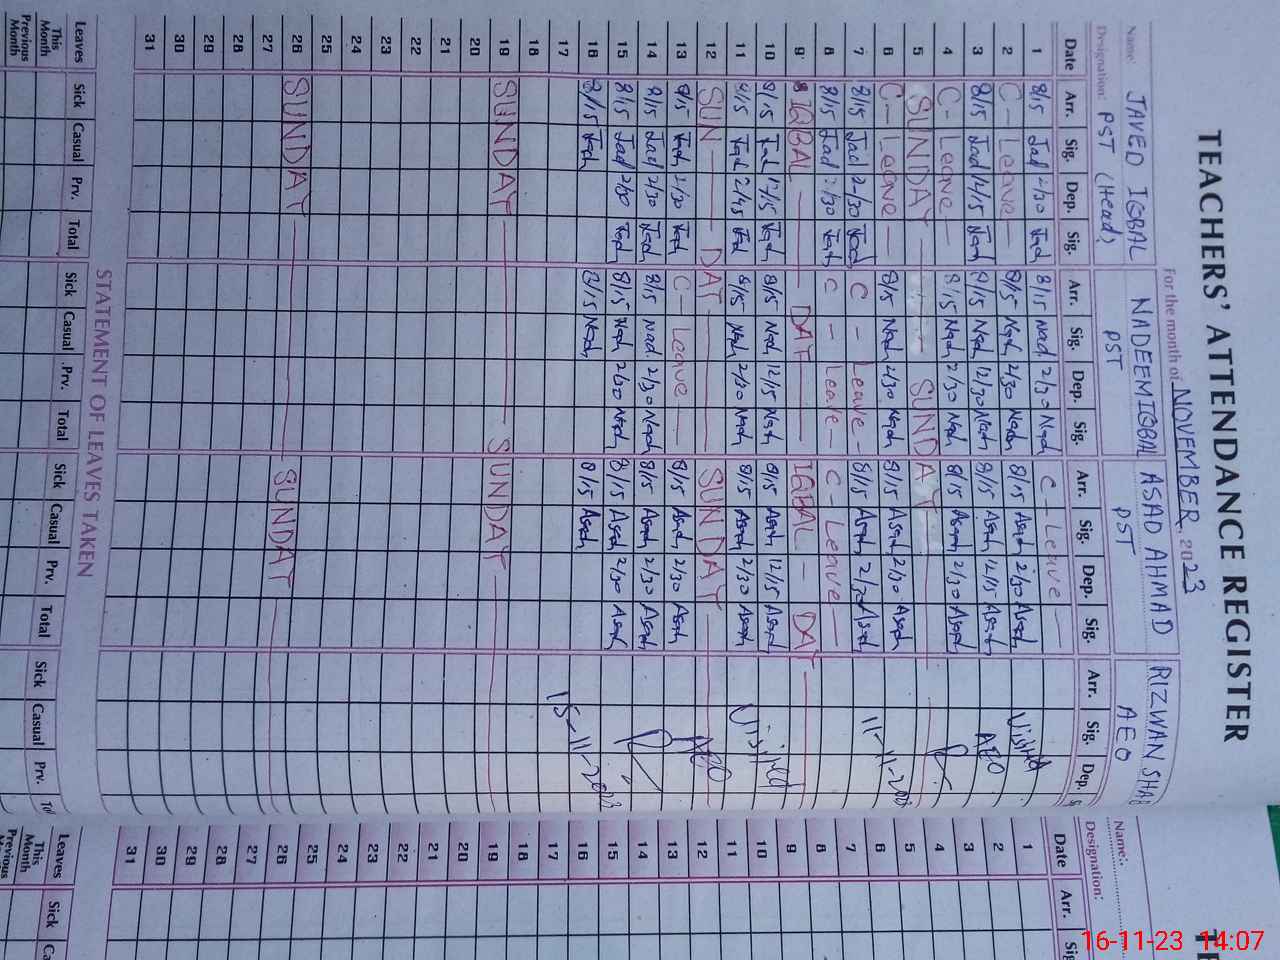 TEACHERS' ATTENDANCE REGISTER
For the month of NOVEMBER, 2023
Name: JAVED IQBAL NADEEM IQBAL ASAD AHMAD RIZWAN SHAH
Designation: PST (Head) PST PST AEO
Date Arr. Sig. Dep. Sig. Arr. Sig. Dep. Sig. Arr. Sig. Dep. Sig. Arr. Sig. Dep. S
1 8/15 2/30 8/15 2/30 C - Leave
2 C - Leave 8/15 2/30 8/15 2/30 Visited
3 8/15 12/15 8/15 12/30 8/15 12/15 AEO
4 C - Leave 8/15 2/30 8/15 2/30
5 SUNDAY SUNDAY
6 C - Leave 8/15 2/30 8/15 2/30 11-11-2023
7 8/15 2/30 C - Leave 8/15 2/30
8 8/15 2/30 C - Leave C - Leave
9 IQBAL DAY IQBAL - DAY
10 8/15 12/15 8/15 12/15 8/15 12/15 Visited
11 8/15 2/45 8/15 2/30 8/15 2/30
12 SUN DAY SUNDAY AEO
13 8/15 2/30 C - Leave 8/15 2/30
14 8/15 2/30 8/15 2/30 8/15 2/30
15 8/15 2/30 8/15 2/30 8/15 2/30
16 8/15 8/15 8/15 15-11-2023
17
18
19 SUNDAY SUNDAY
20
21
22
23
24
25
26 SUNDAY SUNDAY
27
28
29
30
31
STATEMENT OF LEAVES TAKEN
Leaves Sick Casual Prv. Total Sick Casual Prv. Total Sick Casual Prv. Total Sick Casual Prv. To
This Month
Previous Month
Name:
Designation:
Date Arr. Sig
1
2
3
4
5
6
7
8
9
10
11
12
13
14
15
16
17
18
19
20
21
22
23
24
25
26
27
28
29
30
31
Leaves Sick Ca
This Month
Previous
16-11-23 14:07